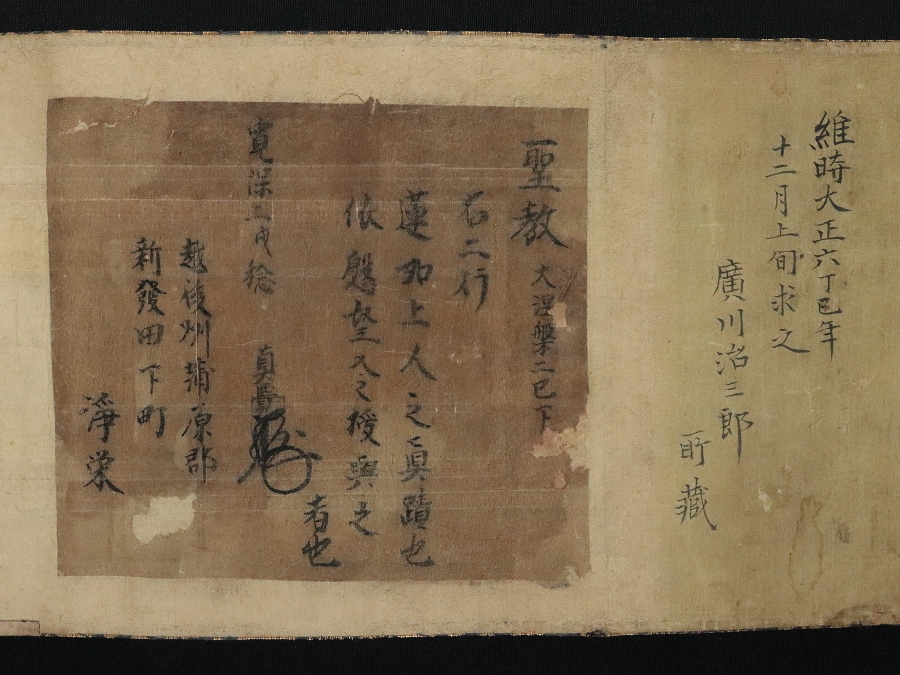 維時大正六丁巳年
十二月上旬求之
廣川治三郎
所藏
一聖教 大涅槃二已下
右二行
蓮如上人之真蹟也
依懇望又之授與之
者也
寛深
越後州蒲原郡
新發田下町
淨栄